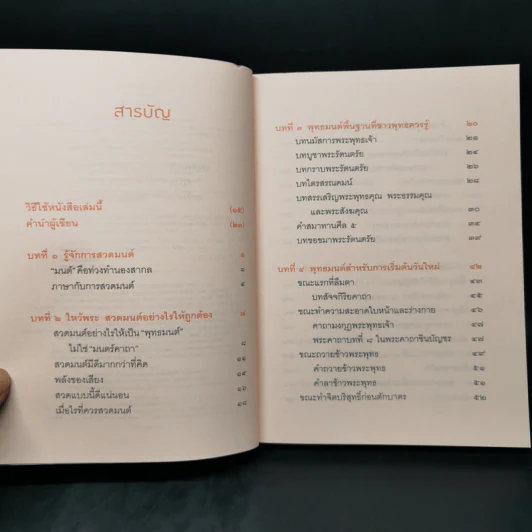 สารบัญ
วิธีใช้หนังสือเล่มนี้ (๑๕)
คำนำผู้เขียน (๒๓)
บทที่ ๑ รู้จักการสวดมนต์ ๑
"มนต์" คือท่วงทำนองสากล ๑
ภาษากับการสวดมนต์ ๔
บทที่ ๒ ไหว้พระ สวดมนต์อย่างไรให้ถูกต้อง ๗
สวดมนต์อย่างไรให้เป็น "พุทธมนต์"
ไม่ใช่ "มนตร์คาถา" ๘
สวดมนต์มีดีมากกว่าที่คิด ๑๑
พลังของเสียง
สวดแบบนี้ดีแน่นอน ๑๖
เมื่อไรที่ควรสวดมนต์ ๑๘
บทที่ ๓ พุทธมนต์พื้นฐานที่ชาวพุทธควรรู้ ๒๐
บทนมัสการพระพุทธเจ้า ๒๑
บทบูชาพระรัตนตรัย ๒๔
บทกราบพระรัตนตรัย ๒๖
บทไตรสรณคมน์ ๒๘
บทสรรเสริญพระพุทธคุณ พระธรรมคุณ
และพระสังฆคุณ ๓๐
คำสมาทานศีล ๕ ๓๔
บทขอขมาพระรัตนตรัย ๓๙
บทที่ ๔ พุทธมนต์สำหรับการเริ่มต้นวันใหม่ ๔๒
ขณะแรกที่ลืมตา ๔๓
บทสัจจกิริยคาถา ๔๕
ขณะทำความสะอาดใบหน้าและร่างกาย
คาถามงกุฎพระพุทธเจ้า ๔๗
พระคาถาบทที่ ๘ ในพระคาถาชินบัญชร ๔๗
ขณะถวายข้าวพระพุทธ ๔๙
คำถวายข้าวพระพุทธ ๕๑
คำลาข้าวพระพุทธ ๕๑
ขณะทำจิตบริสุทธิ์ก่อนตักบาตร ๕๒